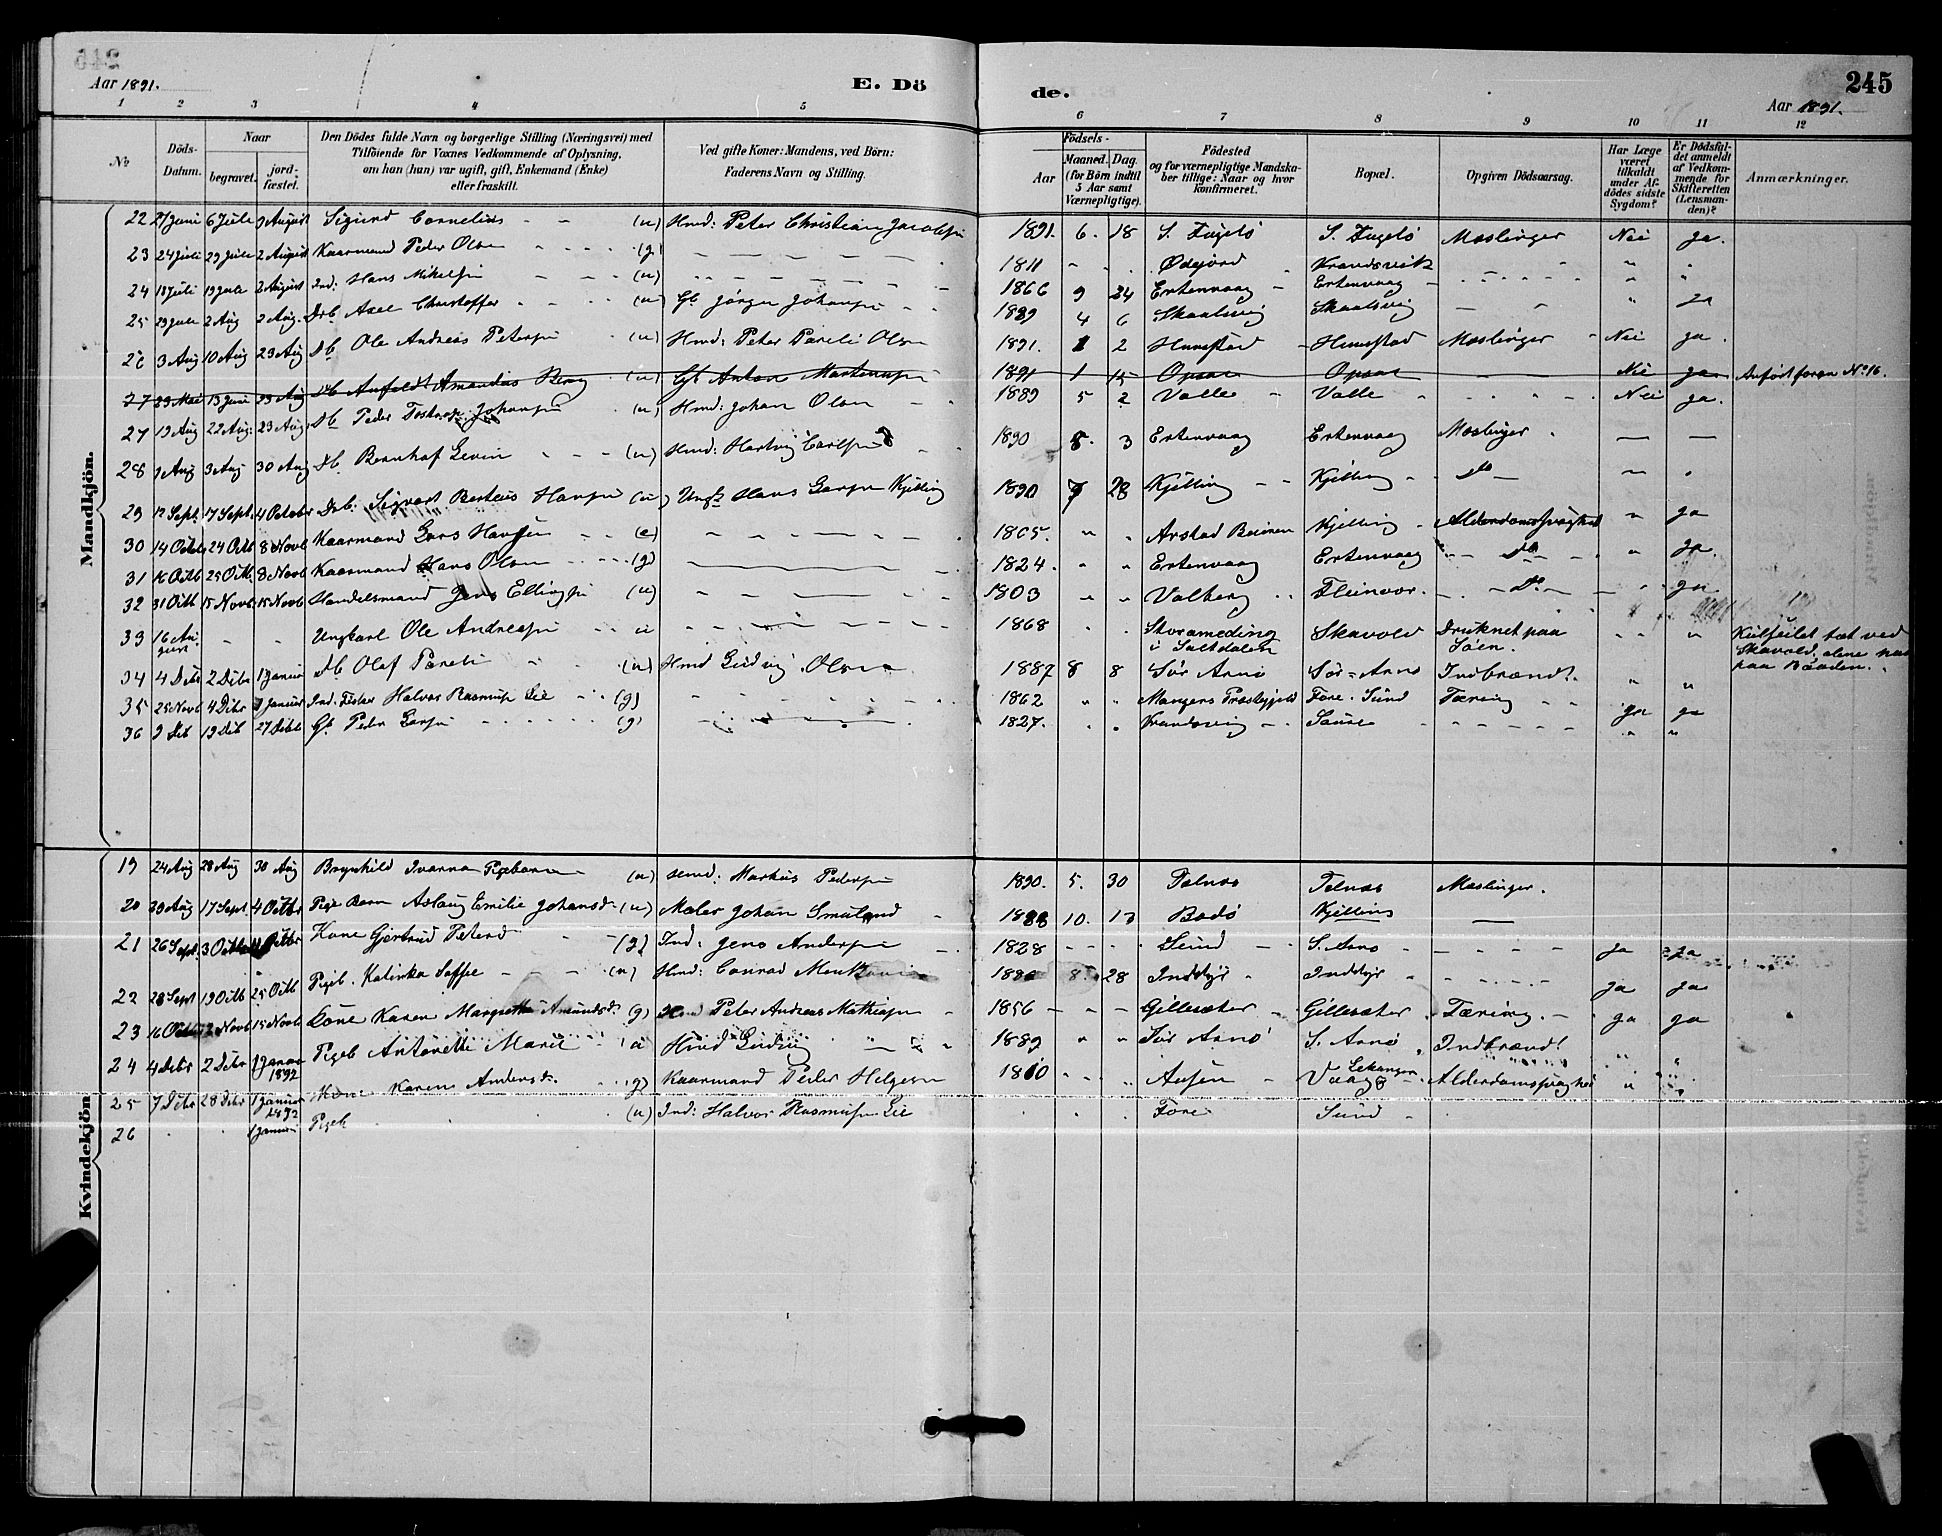 Aar 1891.
E. Dö
de.
245
Aar 1891.
1 2 3 4 5 6 7 8 9 10 11 12
No
Döds-Datum.
Naar
begravet.
jord-fæstet.
Den Dödes fulde Navn og borgerlige Stilling (Næringsvei) med
Tilföiende for Voxnes Vedkommende af Oplysning,
om han (hun) var ugift, gift, Enkemand (Enke)
eller fraskilt.
Ved gifte Koner: Mandens, ved Börn:
Faderens Navn og Stilling.
Födsels-
Aar
Maaned. Dag.
(for Börn indtil
5 Aar samt
Værnepligtige).
Födested
og for værnepligtige Mandska-
ber tillige: Naar og hvor
konfirmeret.
Bopæl.
Opgiven Dödsaarsag.
Har Læge
været
tilkaldt
under Af-
dödes sidste
Sygdom?
Er Dödsfal-
det anmeldt
af Vedkom-
mende for
Skifteretten
(Lensman-
den)?
Anmærkninger.
Mandkjön.
22 27 Juni 6 Jule 2 August Sigurd Cornelius (u) Hmd: Peter Christian Jacobsen 1891. 6. 18 S. Fugelö S. Fugelö Meslinger Nei ja.
23 24 Juli 29 Jule 2 August Kaarmand Peder Olsen (g) 1811 Ødejord
24 18 Juli 19 Jule 2 August Ind: Hans Mikelsen (u) 1866 9 24 Ertenvaag Ertenvaag
25 29 Jule 2 Aug 2 Aug. Drb. Axel Christoffer (u) Gb. Jörgen Johansen 1889 4 6 Skaalsvig Skaalsvig ja
26 3 Aug 10 Aug 23 Aug Db Ole Andreas Petersen (u) Hmd: Peter Pareli Olsen 1891. 1 2 Meslinger Nei ja.
27 23 Mai 13 Juni 23 Aug Db Amandus Berg (u) Gb Anton Mortensen 1891 1 15 Opsar Opsar Nei ja Anfört foran No 16.
27 19 Aug 22 Aug. 23 Aug. Db Peder Johansen (u) Hmd: Johan Olsen 1889 5 2 Valle Valle Nei ja.
28 1 Aug 3 Aug 30 Aug Db. Bernhof Levin (u) Hmd: Hartvig Carlsen 1890 8. 3 Ertenvaag Ertenvaag Meslinger
29 12 Sept. 17 Sept. 4 October Drb: Sigvart Berteus Hansen (u) Ungk Hans Larsen Kjelling 1890 7 28 Kjelling Kjelling Do
30 14 Octb 24 Octb 8 Novb Kaarmand Lars Hansen (e) Arstad Beiaren Kjelling Alderdomssvaghed ja
31 16 Octb 25 Octb. 8 Novb Kaarmand Hans Olsen (g) 1824. Ertenvaag Ertenvaag Do ja.
32 31 Octb 15 Novb 15 Novb Handelsmand Jens Ellingsen (u) 1803 Valberg Fleinvær. Do ja
33 16 August Ungkarl Ole Andreasen u 1868 Storameding i Saltdalen Skavold Druknet paa Söen. Kuldseilet tæt ved Skavold, alene paa Baaden.
34 4 Debr 2 Debr 1 Januar Db Olaf Pareli (u) Hmd Ludvig Olsen 1887 8 8 Sör Arnö Sör=Arnö Indbrændt.
35 25 Novb 4 Debr 1 Januar Ind: Halvor Rasmusen Lie (g) 1862 Mangers Præstegjeld Fore. Sund Tæring ja ja
36 9 Deb 19 Deb 27 Debb Gb Peder Larsen (g) 1827.
Kvindekjön
19 24 Aug 28 Aug 30 Aug Brynhild Ivanna Pigebarn (u) Hmd: Markus Pedersen 1890. 5. 30 Telnæs Telnæs Meslinger.
20 29 Aug 17 Sept 4 Octbr Pige Barn Aslaug Emilie Johansd. (u) Maler Johan 1888 10. 13 Bodö Kjelling
21 26 Sept. 3 Octb 4 Octbr Kone Gjertrud Petersd (g) Ind: Jens Andersen 1828 Sund S. Arnö ja ja
22 28 Sept 19 Octb 25 Octb Pigeb. Katinka Soffie (u) Hmd: Conrad 8. 28 Inddyr Inddyr ja ja
23 16 Octb 2 Novb 15 Novb Kone Karen Margrethe Amundsd. (g) Hmd Peter Andreas Mathisen 1856 Gillesæter Gillesæter Tæring. ja ja
24 4 Debr 2 Debr 1 Januar 1892 Pigeb Antonette Marie u Hmd Ludvig 1889 Sör Arnö S. Arnö Indbrændt
25 7 Debr 28 Debr 1 Januar 1892 Kone Karen Andersd. (g) Kaarmand Peder Helgesen 1810 Alderdomssvaghed
26 1 Januar Pigeb (u) Ind: Halvor Rasmusen Lie Fore Sund